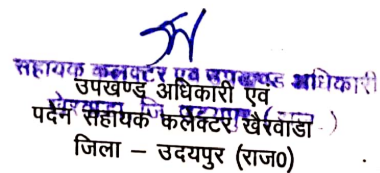 सहायक कलक्टर एवं उपखण्ड अधिकारी
उपखण्ड अधिकारी एवं
पदेन सहायक कलेक्टर खैरवाडा
जिला – उदयपुर (राज0)